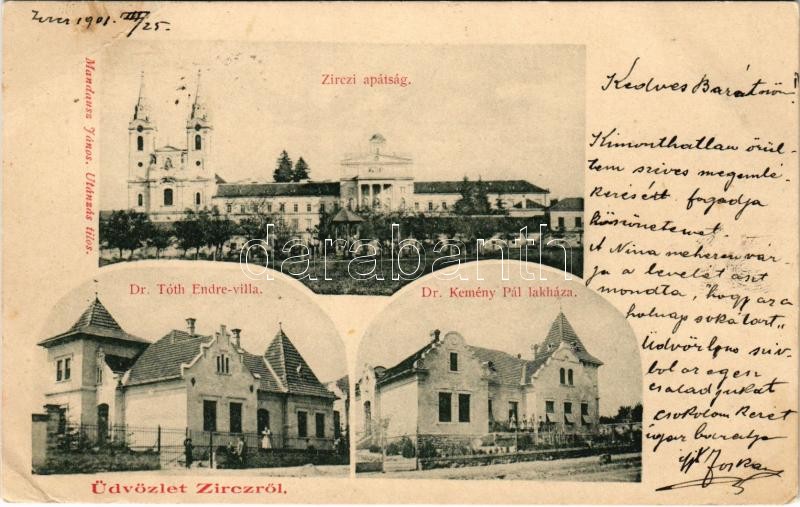 1901. III/25.
Zirczi apátság.
Mandausz János. Utánzás tilos.
darabanth
Dr. Tóth Endre-villa.
Dr. Kemény Pál lakháza.
Üdvözlet Zirczről.
Kedves Barátom!
Kimonthatlan örül-
tem szives megemlé-
kezését fogadja
köszönetemet.
A Nina nehezen vár-
ja a levelét azt
mondta, "hogy az a
holnap soká tart"
Üdvözlöm sziv-
ből az egész
családjukat
csókolom kezét
igaz barátja